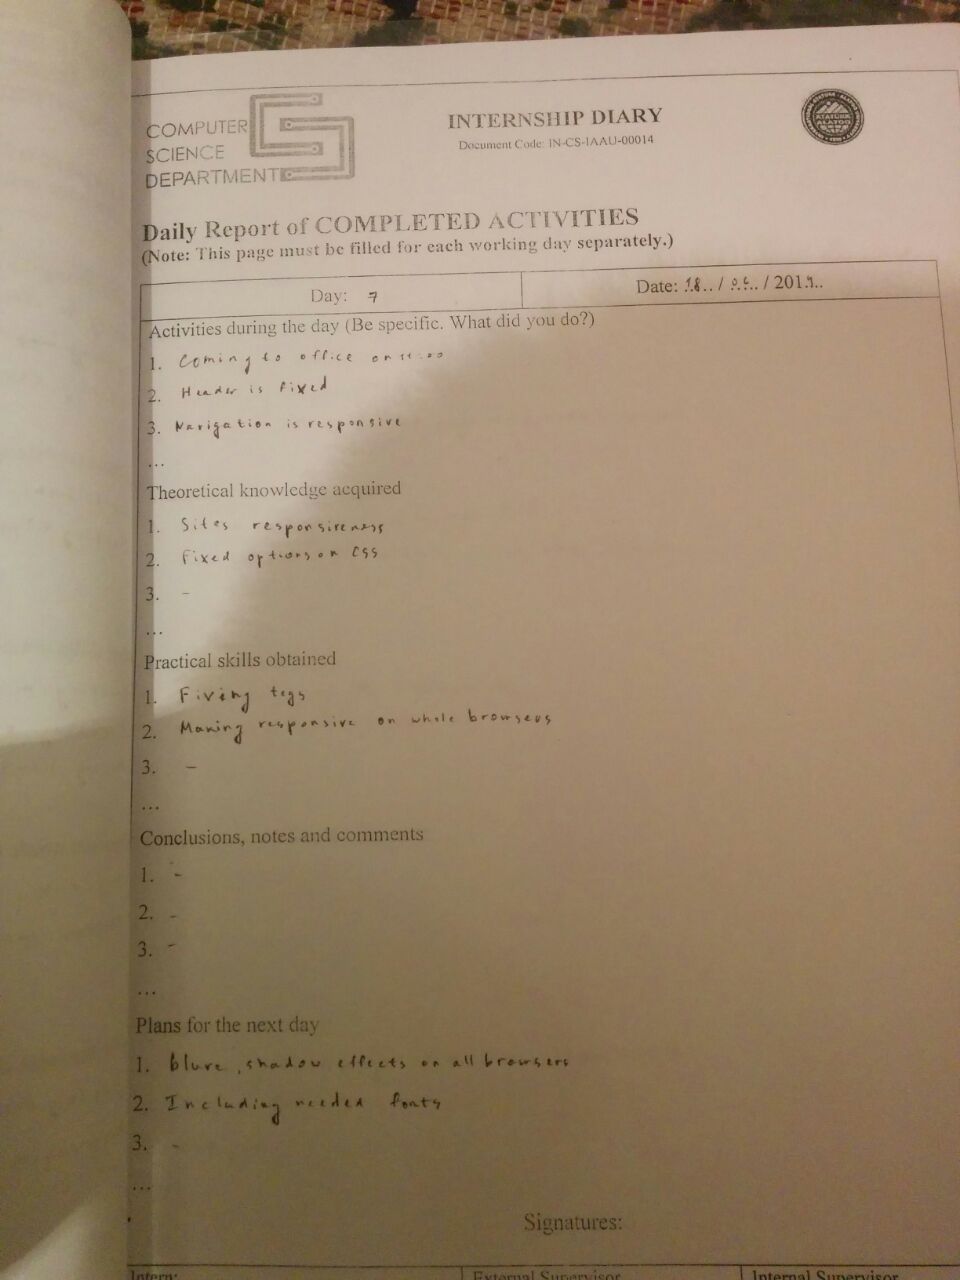 COMPUTER
SCIENCE
DEPARTMENT
INTERNSHIP DIARY
Document Code: IN-CS-IAAU-00014
Daily Report of COMPLETED ACTIVITIES
(Note: This page must be filled for each working day separately.)
Day: 7
Date: 18 / 06 / 201
Activities during the day (Be specific. What did you do?)
1. Coming to office on 11:00
2. Header is fixed
3. Navigation is responsive
...
Theoretical knowledge acquired
1. Sites responsiveness
2. Fixed options on CSS
3. -
...
Practical skills obtained
1. Fixing tegs
2. Making responsive on whole browsers
3. -
...
Conclusions, notes and comments
1. -
2. -
3. -
...
Plans for the next day
1. blure, shadow effects on all browsers
2. Including needed fonts
3. -
...
Signatures:
Intern:
External Supervisor
Internal Supervisor